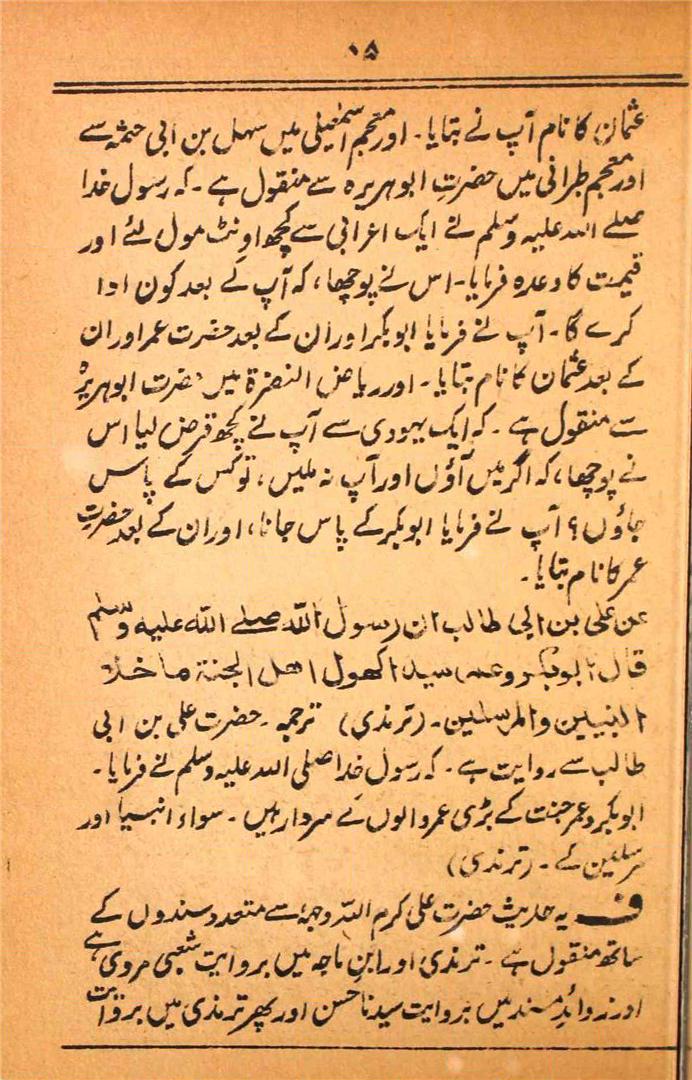 ۱۵
عثمان کا نام آپ نے بتایا۔ اور معجم اسمٰعیلی میں سہل بن ابی حثمہ سے
اور معجم طبرانی میں حضرتِ ابوہریرہ سے منقول ہے۔ کہ رسول خدا
صلے اللہ علیہ وسلم نے ایک اعرابی سے کچھ اونٹ مول لئے اور
قیمت کا وعدہ فرمایا۔ اس نے پوچھا، کہ آپ کے بعد کون ادا
کرے گا۔ آپ نے فرمایا ابوبکر اور ان کے بعد حضرت عمر اور ان
کے بعد عثمان کا نام بتایا۔ اور ریاض النضرۃ میں حضرت ابوہریرہ
سے منقول ہے۔ کہ ایک یہودی سے آپ نے کچھ قرض لیا اس
نے پوچھا، کہ اگر میں آؤں اور آپ نہ ملیں، تو کس کے پاس
جاؤں؟ آپ نے فرمایا ابوبکر کے پاس جانا، اور ان کے بعد حضرتِ
عمر کا نام بتایا۔
عن علی بن ابی طالب ان رسول اللہ صلے اللہ علیہ وسلم
قال ابوبکر وعمر سیدا کھول اھل الجنۃ ما خلا
النبیین والمرسلین۔ (ترمذی) ترجمہ۔ حضرت علی بن ابی
طالب سے روایت ہے۔ کہ رسول خدا صلی اللہ علیہ وسلم نے فرمایا۔
ابوبکر و عمر جنت کے بڑی عمر والوں کے سردار ہیں۔ سواء انبیا اور
مرسلین کے۔ (ترمذی)
ف یہ حدیث حضرت علی کرم اللہ وجہہٗ سے متعدد سندوں کے
ساتھ منقول ہے۔ ترمذی اور ابن ماجہ میں بروایت شعبی مروی ہے
اور زوائدِ مسند میں بروایت سیدنا حسن اور پھر ترمذی میں بروایت